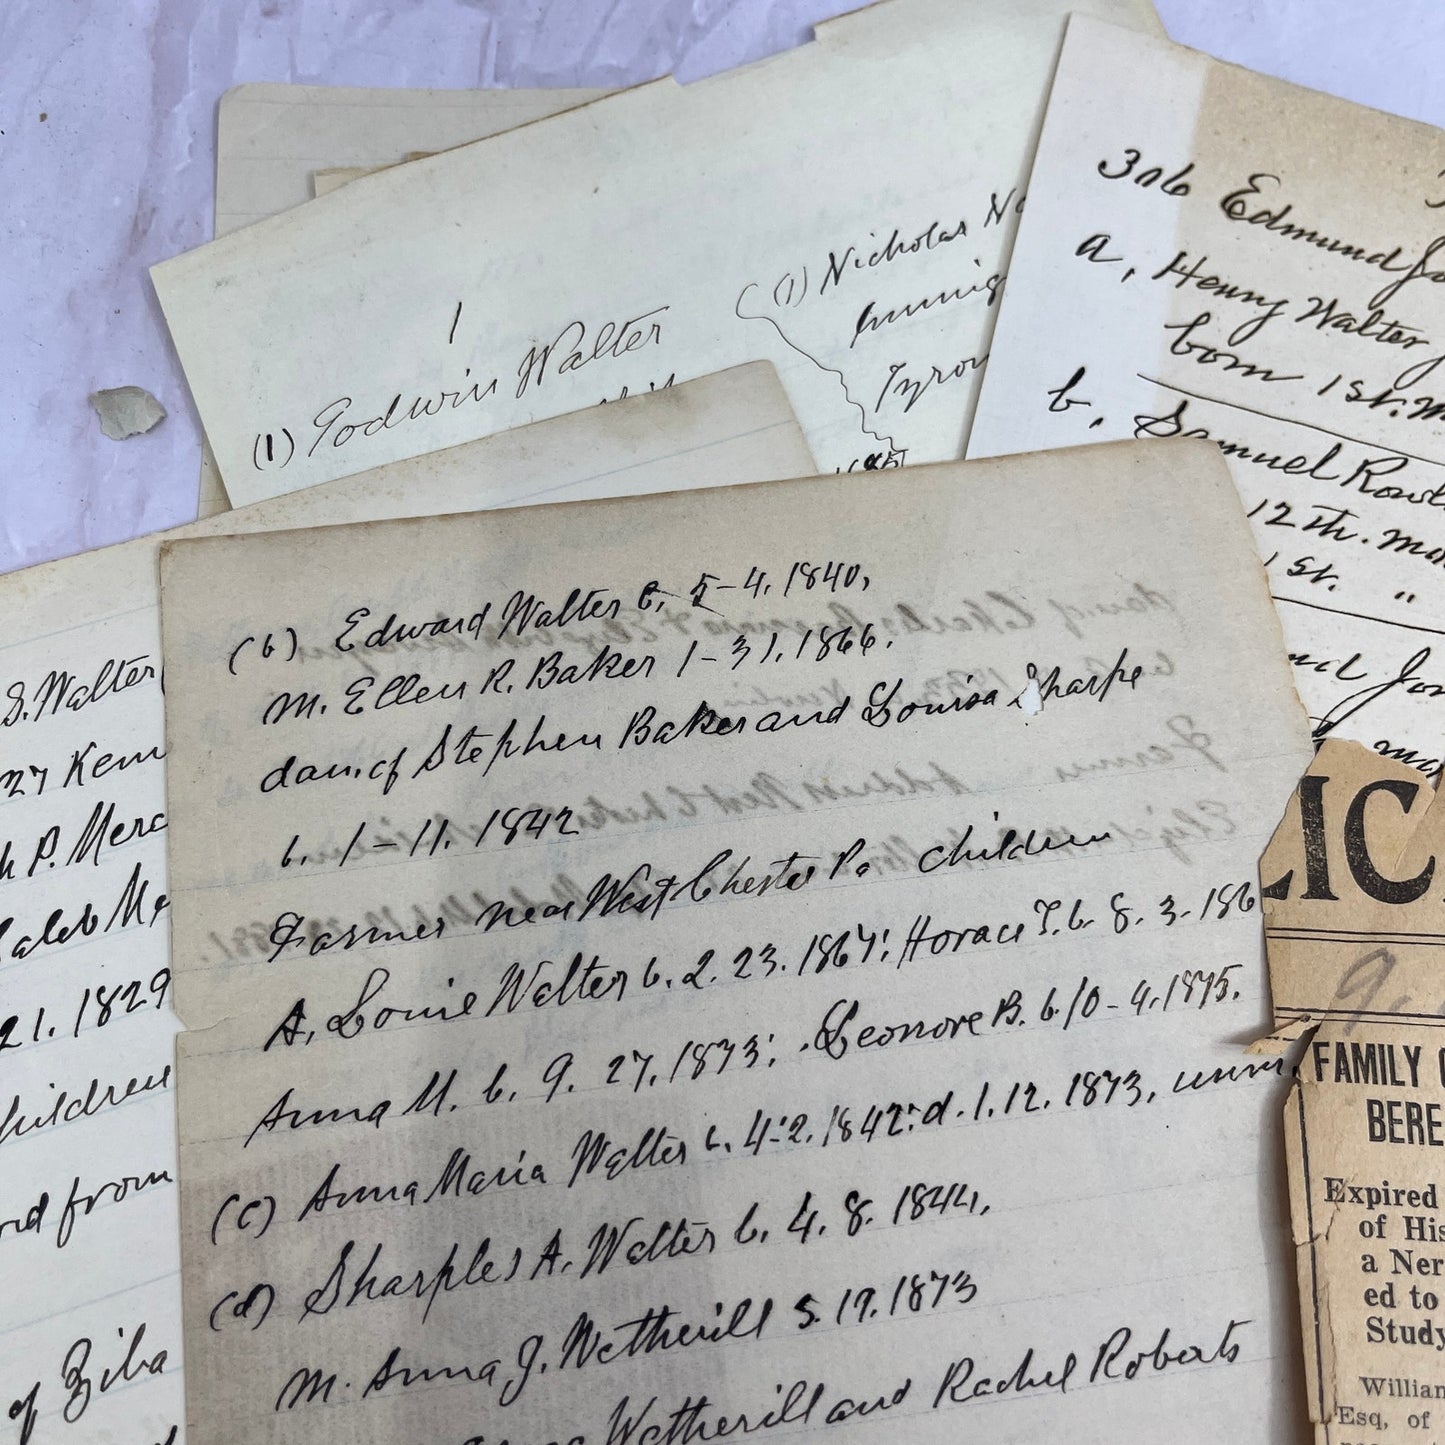 1
(1) Godwin Walter
(1) Nicholas
Tyron
1685
306 Edmund
a, Henry Walter
born 1st. m
b, Samuel Rowl
12th. mo
1st. "
mo
S. Walter
27 Kenn
P. Merc
Caleb Me
21. 1829
children
nd from
of Ziba
(b) Edward Walter b. 5-4. 1840,
m. Ellen R. Baker 1-31. 1866.
dau. of Stephen Baker and Louisa Sharpe
b. 1-11. 1842
Farmer near West Chester Pa children
A. Louie Walter b. 2. 23. 1867; Horace T. b. 8. 3. 186
Anna M. b. 9. 27. 1873; Leonore B. b. 10-4. 1875.
(c) Anna Maria Walter b. 4-2. 1842; d. 1. 12. 1873, unm.
(d) Sharples A. Walter b. 4. 8. 1844,
m. Anna J. Wetherill 5. 17. 1873
Wetherill and Rachel Roberts
LIC
9.
FAMILY
BERE
Expired
of His
a Ner
ed to
Study
William
Esq, of